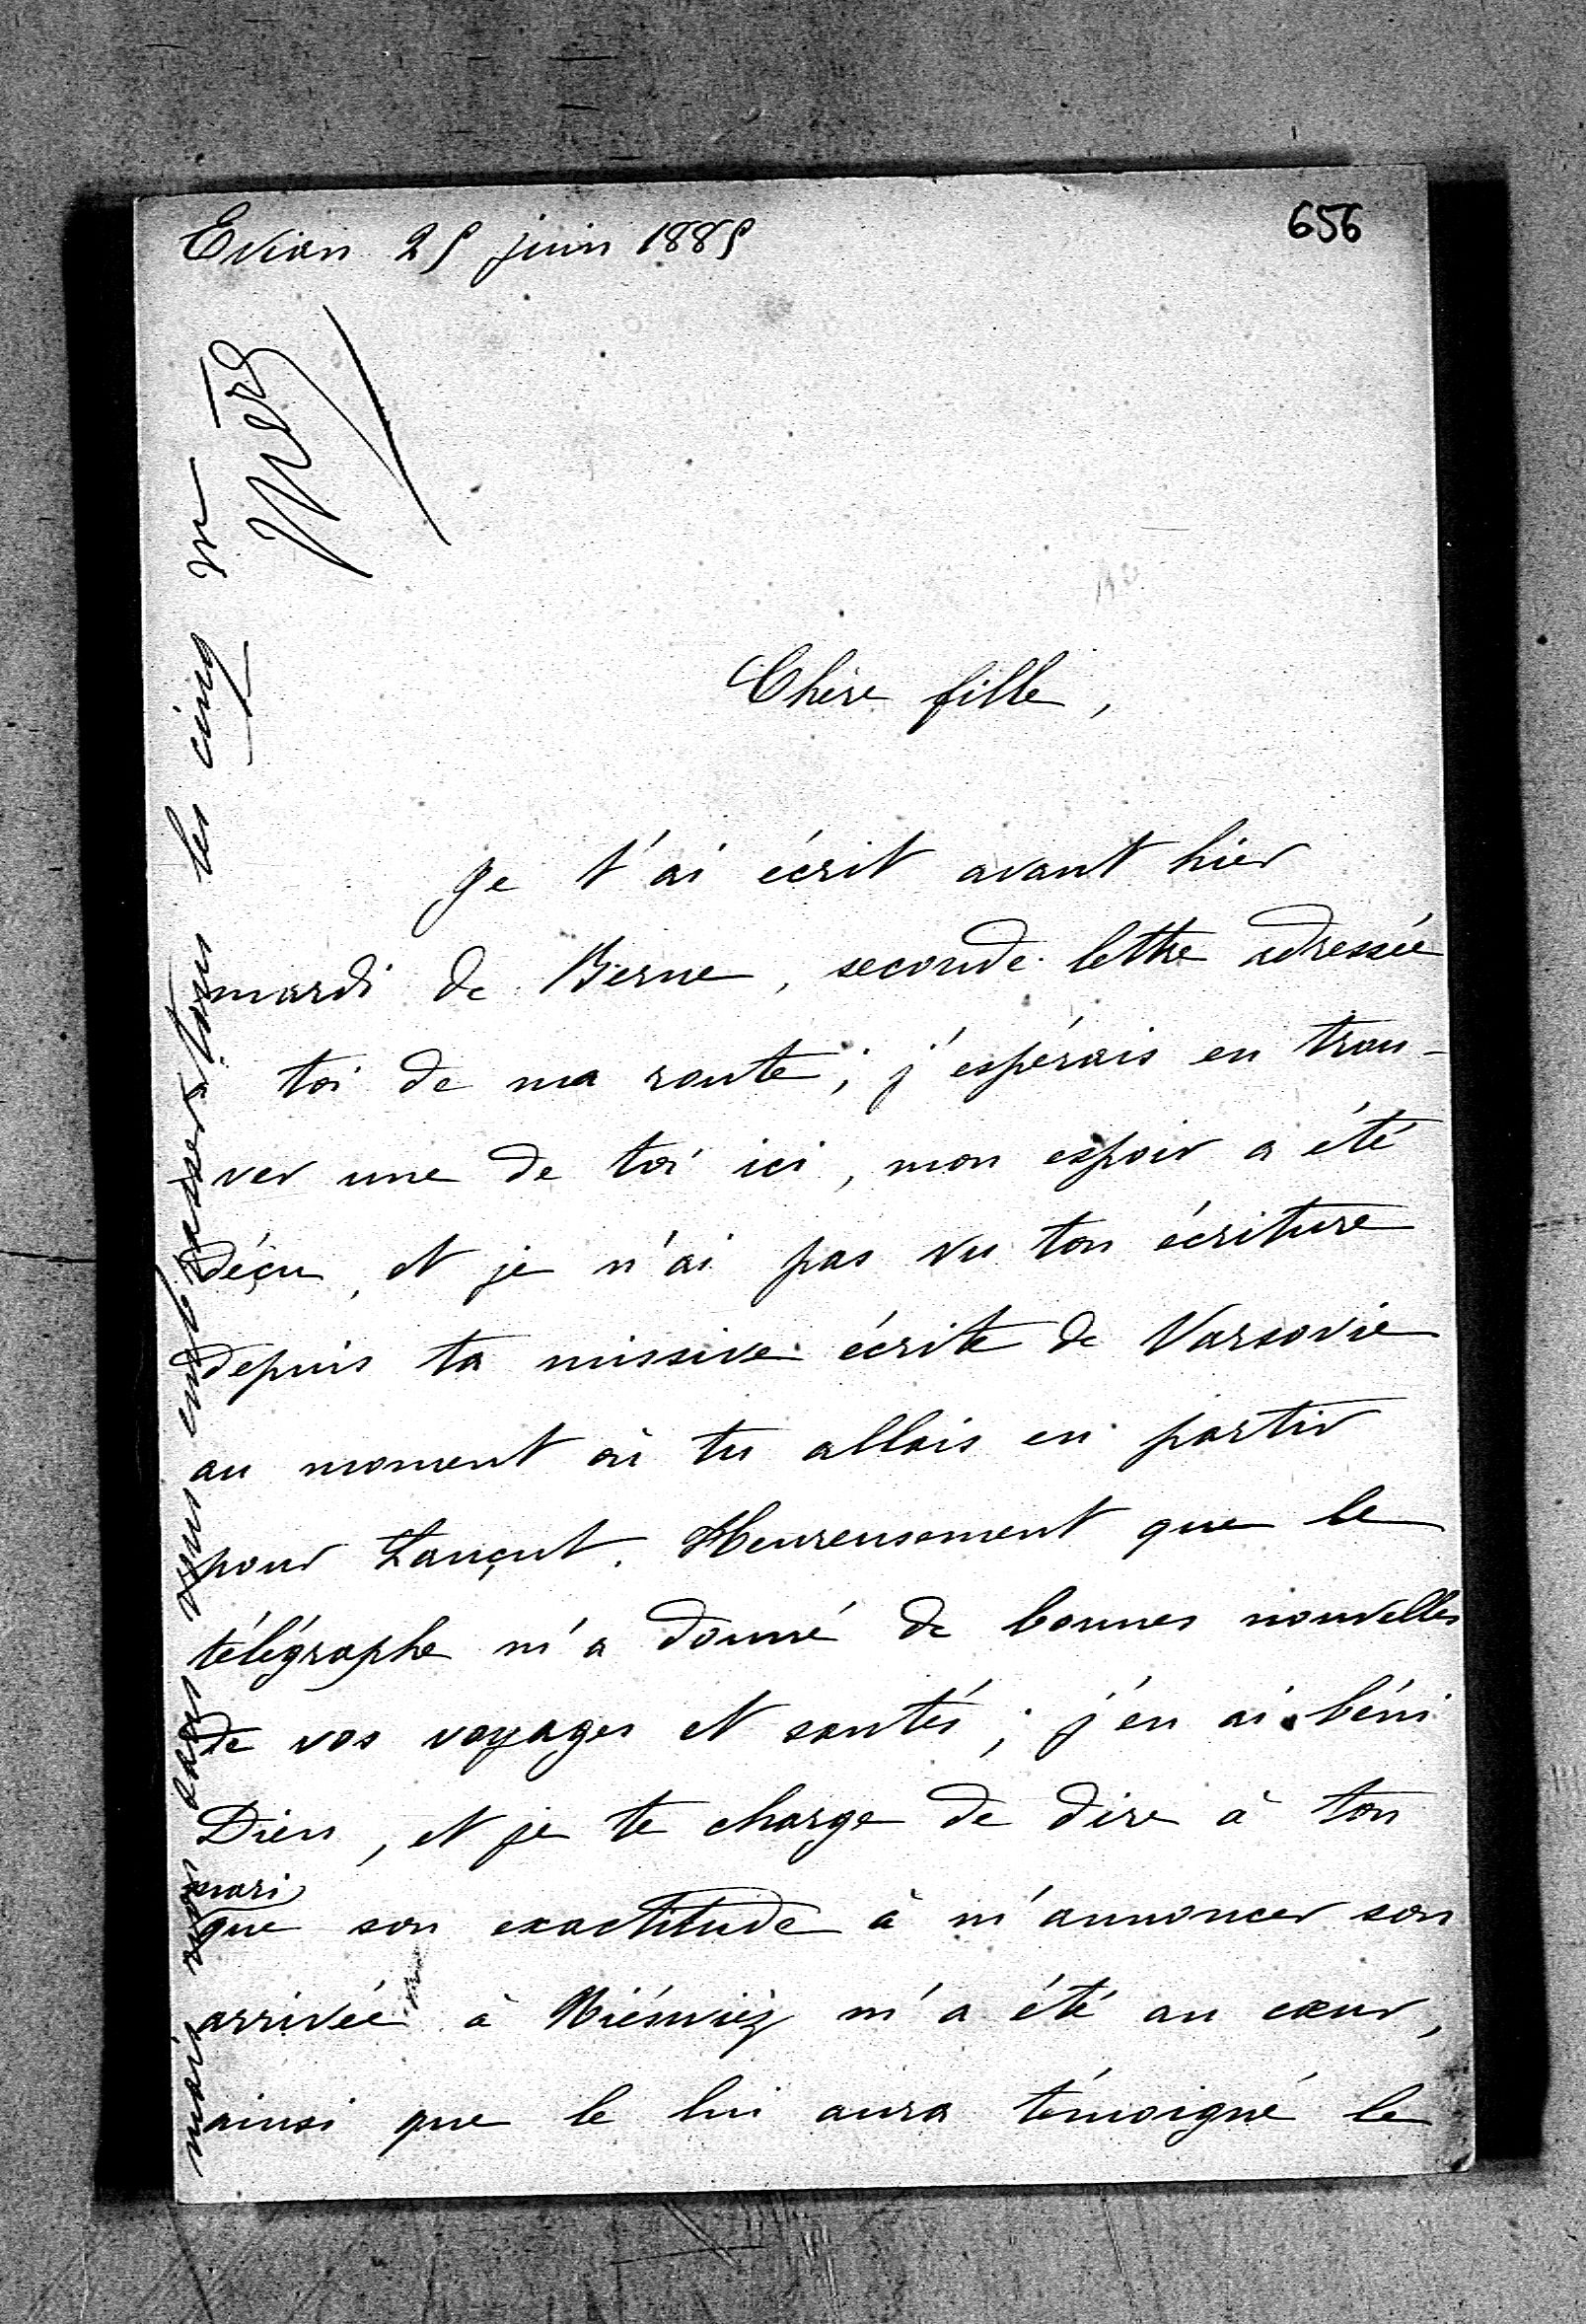 Evian 25 juin 1885
656
Chère fille,
Je t'ai écrit avant hier
mardi de Berne, seconde lettre adressée
à toi de ma route; j'espérais en trou-
ver une de toi ici, mon espoir a été
déçu, et je n'ai pas vu ton écriture
depuis ta missive écrite de Varsovie
au moment où tu allais en partir
pour Łançut. Heureusement que le
télégraphe m'a donné de bonnes nouvelles
de vos voyages et santés; j'en ai béni
Dieu, et je te charge de dire à ton
mari
que son exactitude à m'annoncer son
arrivée à Niéswiéz m'a été au cœur,
ainsi que le lui aura témoigné le
mais non sans vous embrasser tous les cinq
Mère